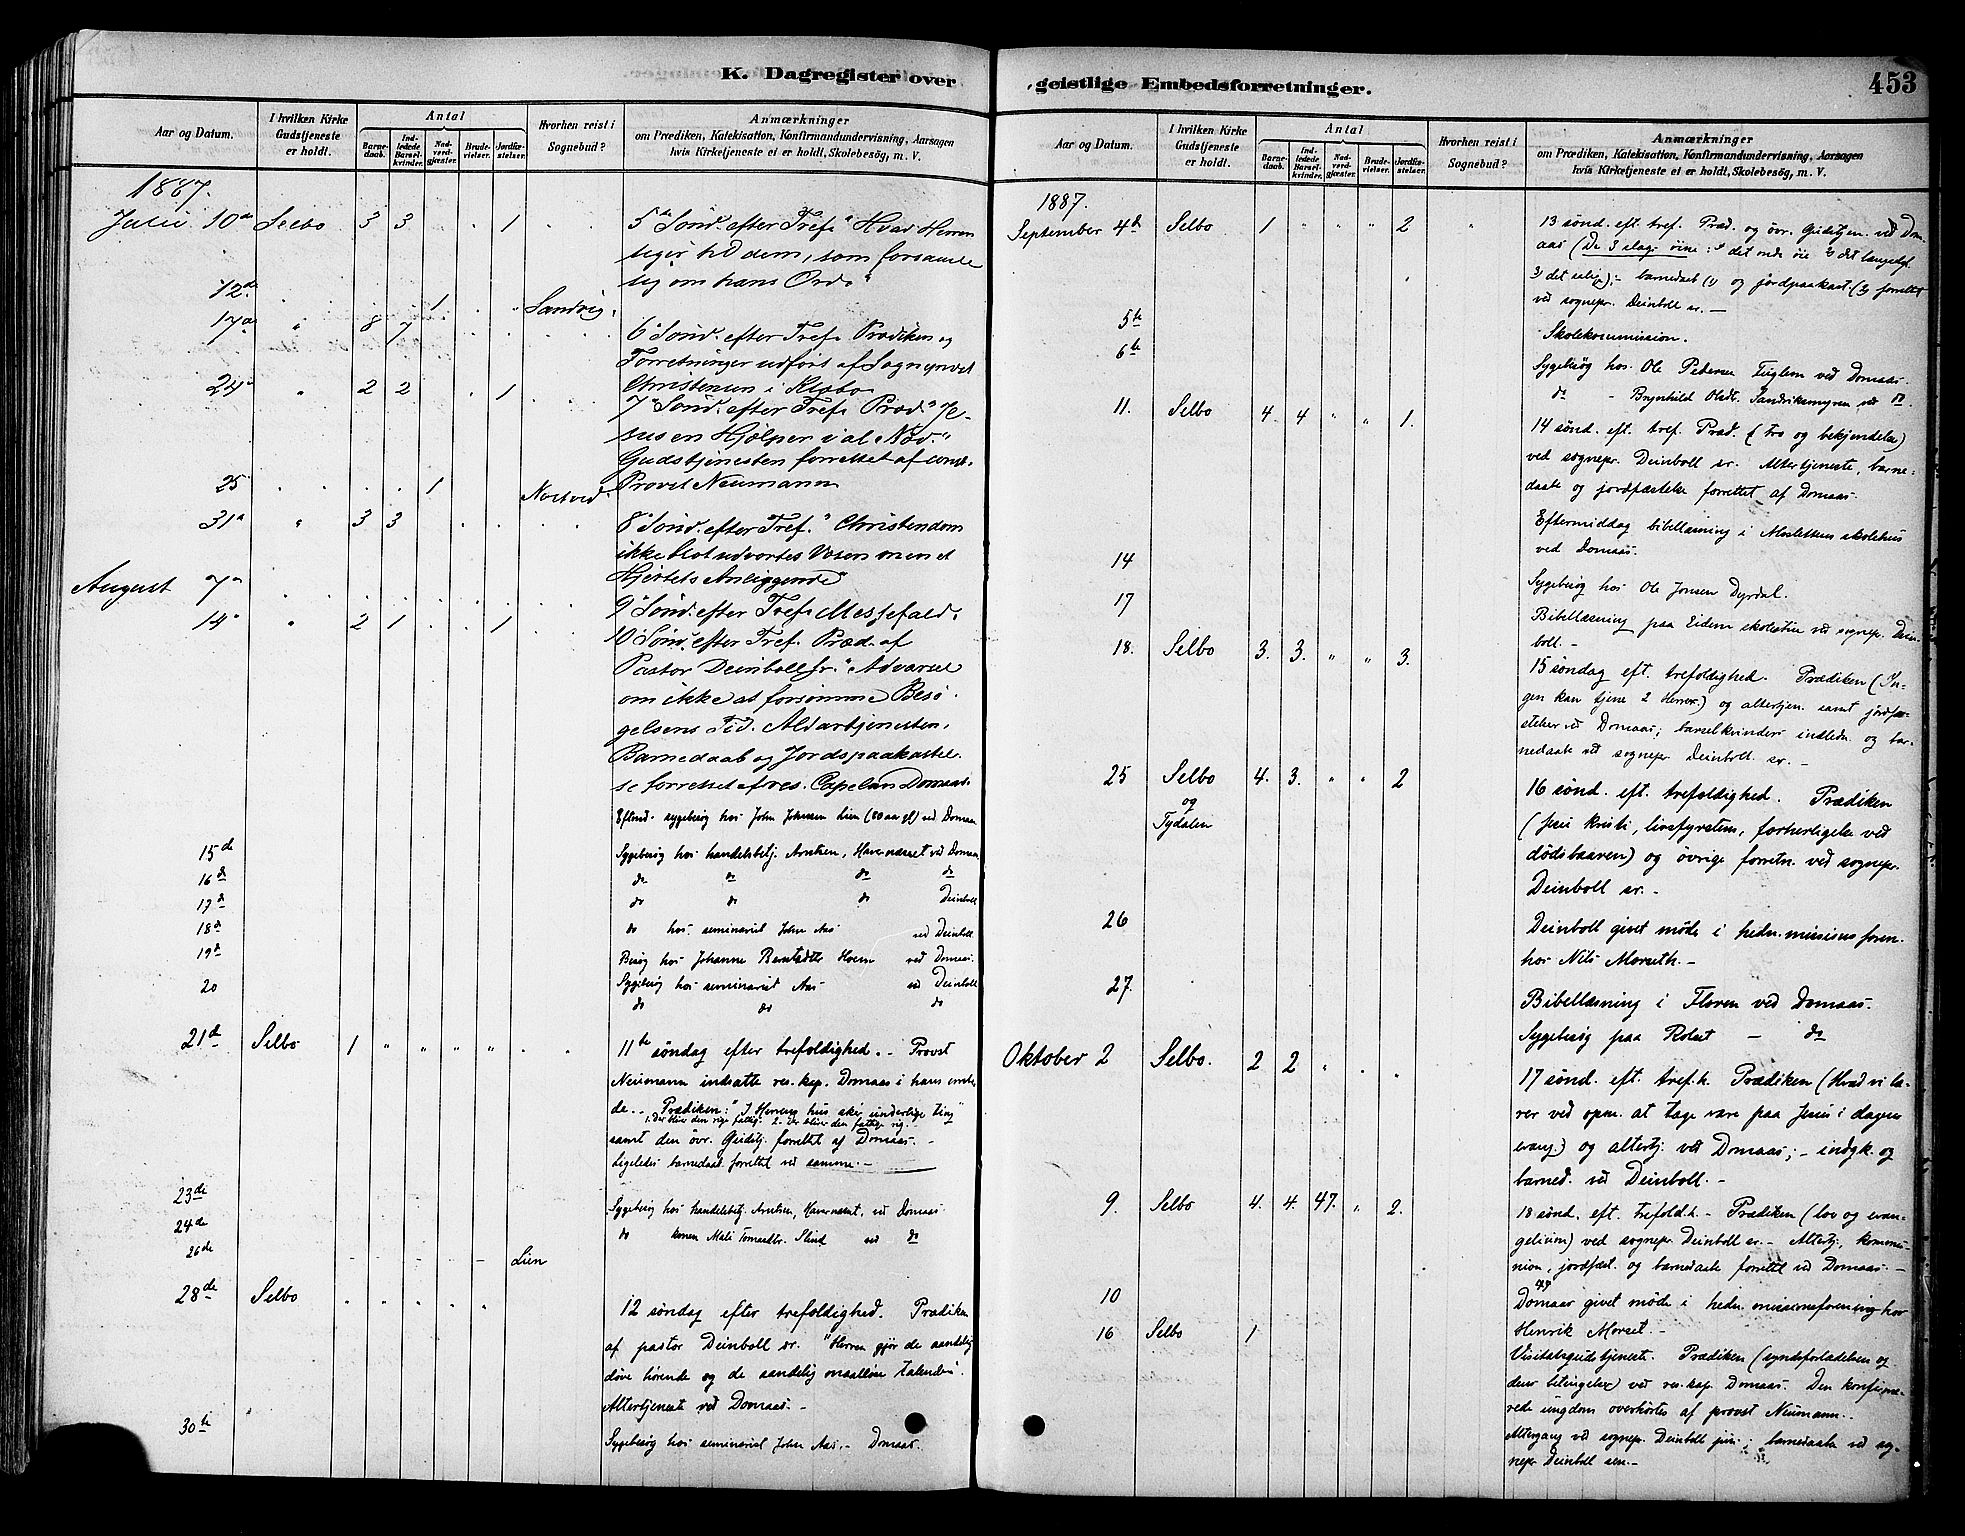 K. Dagregister over
Aar og Datum.
I hvilken Kirke Gudstjeneste er holdt.
Antal
Barnedaab.
Indledede Barselkvinder.
Nadverdgjæster.
Brudevielser.
Jordfæstelser.
Hvorhen reist i Sognebud?
Anmærkninger
om Prædiken, Katekisation, Konfirmandundervisning, Aarsagen
hvis Kirketjeneste ei er holdt, Skolebesøg, m. V.
1887.
Julii 10de Selbo 3 3 " 1 5te Sønd. efter Tref. "Hvad Herren
siger til dem, som forsamle
sig om hans Ord."
12te 1 Sandvig.
17de " 8 7 6 Sønd. efter Tref. Prædiken og
Forretninger udført af Sognepræst
Christensen i Klæbo
24 " 2 2 1 7 Sønd. efter Tref. Præd. "Je-
sus en Hjælper i al Nød."
Gudstjenesten forrettet af const.
Provst Neumann
25 1
31 " 3 3 8 Sønd. efter Tref. "Christendom
ikke blot udvortes Væsen men et
Hjertets Anliggende"
August 7 9 Sønd. efter Tref. Messefald.
14 " 2 1 1 10 Sønd. efter Tref. Præd. af
Pastor Deinboll sr. "Advarsel
om ikke at forsømme Besø-
gelsens Tid. Altartjenesten,
Barnedaab og Jordspaakastel-
se forrettet af res. Capelan Domaas.
Eftmd. sygebesøg hos John Johnsen Lien (80 aar gl) ved Domaas
15d Sygebesøg hos handelsbetj. Arntsen, Havernesset ved Domaas
16d do do do do
17d do do do Deinboll
18d do hos seminarist John Aas ved Deinboll
19d Besøg hos Johanne Hoem ved Domaas.
20 Sygebesøg hos seminarist Aas ved Deinboll
do do do
21de Selbo 1 " " " " 11te søndag efter trefoldighed. - Provst
Neumann indsatte res. kap. Domaas i hans embe-
de. - Prædiken: "I Herrens hus sker underlige ting"
1. Der bliver den rige fattig. 2. Der bliver den fattige rig.
samt den övr. Gudstj. forrettet af Domaas. -
Ligeledes barnedaab forrettet ved samme. -
23de Sygebesøg hos handelsbetj. Arntsen, Havernesset, ved Domaas
24de do konen Mali Tomasdtr. Slind ved do
26de Lien
28de Selbo " " " " " 12 søndag efter trefoldighed. Prædiken
af pastor Deinboll sr. "Herren gjør de aandelig
døve hørende og de aandelig maalløse talende."
Altertjeneste ved Domaas. -
30te " Sygebesøg hos seminarist John Aas. - Domaas.
geistlige Embedsforretninger.
453
Aar og Datum.
I hvilken Kirke Gudstjeneste er holdt.
Antal
Barnedaab.
Indledede Barselkvinder.
Nadverdgjæster.
Brudevielser.
Jordfæstelser.
Hvorhen reist i Sognebud?
Anmærkninger
om Prædiken, Katekisation, Konfirmandundervisning, Aarsagen
hvis Kirketjeneste ei er holdt, Skolebesøg, m. V.
1887.
September 4de Selbo 1 " " " 2 " 13 sønd. eft. tref. Præd. og övr. Gudstjen. ved Dom-
aas (De 3 slags øine: 1) det onde øie 2)
3) det); - barnedaab (1) og jordpaakast. (2) forrettet
ved sognepr. Deinboll sr. -
5te Skolekommission.
6te Sygebesøg hos Ole Pedersen Fuglem ved Domaas.
do - Brynhild Olsdtr. ved do.
11. Selbo 4. 4 " " 1. 14 sønd. eft. tref. Præd. (Tro og bekjendelse)
ved sognepr. Deinboll sr. Altertjeneste, barne-
daab og jordfæstelse forrettet af Domaas.
Eftermiddag bibellæsning i Moslettens skolehus
ved Domaas.
14 Sygebesøg hos Ole Jonsen Dyrdal.
17 Bibellæsning paa Eidem skolestue ved sognepr. Dein-
boll. -
18. Selbo 3. 3. " " 3. 15 søndag eft. trefoldighed. Prædiken (In-
gen kan tjene 2 Herrer.) og altertjen. samt jordfæ-
stelser ved Domaas; barselkvinders indledn. og bar-
nedaab ved sognepr. Deinboll sr. -
25 Selbo og Tydalen 4. 3. " " 2 16 sønd. eft. trefoldighed. Prædiken
(Jesu Kristi, livsfyrstens, forherligelse ved
dödsbaaren) og övrige forretn. ved sognepr.
Deinboll sr. -
26 Deinboll givet møde i hedn. missions foren.
hos Nils Morseth. -
27. Bibellæsning i Floren ved Domaas.
Sygebesøg paa Rolset - do
Oktober 2 Selbo. 2 2 " " " 17 sønd. eft. tref.h. Prædiken (Hvad vi læ-
rer ved opm. at tage vare paa Jesus i dagens
evang.) og altertj. ved Domaas; - indgk. og
barned. ved Deinboll. -
9. Selbo 4. 4. 47. " 2. 18 sønd. eft. trefold.h. - Prædiken (lov og evan-
gelium) ved sognepr. Deinboll sr. - Altertj., kommu-
nion, jordfæst. og barnedaab forrettet ved Domaas. -
10 Domaas givet møde i hedn. missionsforening hos
Henrik Morset. -
16 Selbo 1 Visitatsgudstjeneste. Prædiken (syndsforladelsen og
dens betingelse) ved res. kap. Domaas. Den konfirme-
rede ungdom overhørtes af provst Neumann.
Altergang ved sognepr. Deinboll jun.; barnedaab ved sog-
nepr Deinboll sen. -